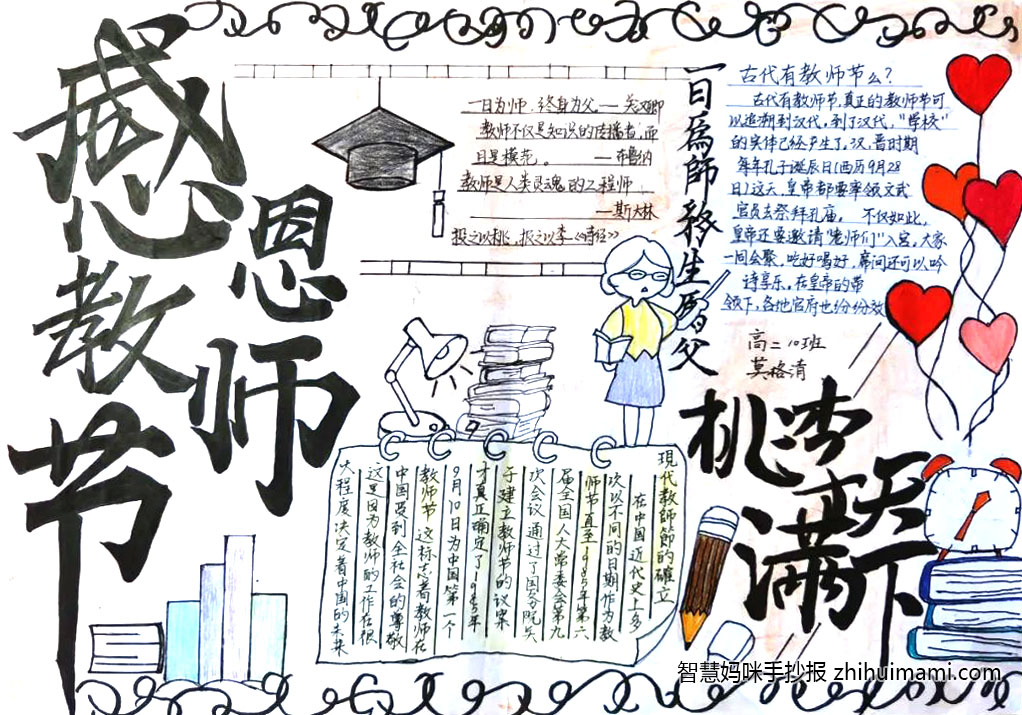 感恩教师节
一日为师,终身为父。— 关汉卿
教师不仅是知识的传播者,而
且是模范。 — 布鲁纳
教师是人类灵魂的工程师
—斯大林
投之以桃,报之以李《诗经》
一日為師 終生為父
古代有教师节么?
古代有教师节,真正的教师节可
以追溯到汉代,到了汉代,"学校"
的实体已经产生了,汉、晋时期
每年孔子诞辰日(西历9月28
日)这天,皇帝都要率领文武
官员去祭拜孔庙。 不仅如此,
皇帝还要邀请"老师们"入宫,大家
一同会聚、吃好喝好,席间还可以吟
诗享乐。在皇帝的带
领下,各地官府也纷纷效
高二10班
莫格清
桃李满天下
現代教師節的確立
在中国近代史上多
次以不同的日期作为教
师节直至1985年第六
届全国人大常委会第九
次会议通过了国务院关
于建立教师节的议案
才真正确定了1985年
9月10日为中国第一个
教师节 这标志着教师在
中国受到全社会的尊敬
这是因为教师的工作在很
大程度决定着中国的未来
智慧妈咪手抄报 zhihuimami.com